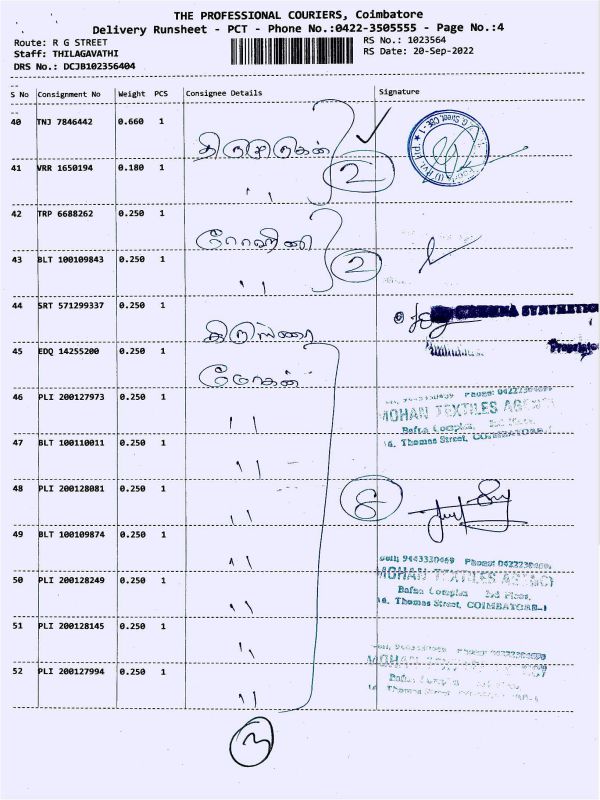 THE PROFESSIONAL COURIERS, Coimbatore
Delivery Runsheet - PCT - Phone No.:0422-3505555 - Page No.:4
Route: R G STREET
RS No.: 1023564
Staff: THILAGAVATHI
RS Date: 20-Sep-2022
DRS No.: DCJB102356404
S No Consignment No Weight PCS Consignee Details Signature
40 TNJ 7846442 0.660 1
திருமுருகன்
41 VRR 1650194 0.180 1 2
" 
42 TRP 6688262 0.250 1
ரோஹிணி
43 BLT 100109843 0.250 1 2
"
44 SRT 571299337 0.250 1
KRISHNA SYNTHETICS
கிருஷ்ணா
45 EDQ 14255200 0.250 1
Proprietor
மோகன்
46 PLI 200127973 0.250 1
"
MOHAN TEXTILES AGENCY
Bafna Complex, 2nd Floor,
47 BLT 100110011 0.250 1
16, Thomas Street, COIMBATORE-1
"
48 PLI 200128081 0.250 1
"
49 BLT 100109874 0.250 1
"
Cell: 9443330469 Phone: 0422230469
50 PLI 200128249 0.250 1
MOHAN TEXTILES AGENCY
Bafna Complex 2nd Floor,
"
16, Thomas Street, COIMBATORE-1
51 PLI 200128145 0.250 1
"
MOHAN TEXTILES AGENCY
52 PLI 200127994 0.250 1
Bafna Complex
"
Thomas Street
3